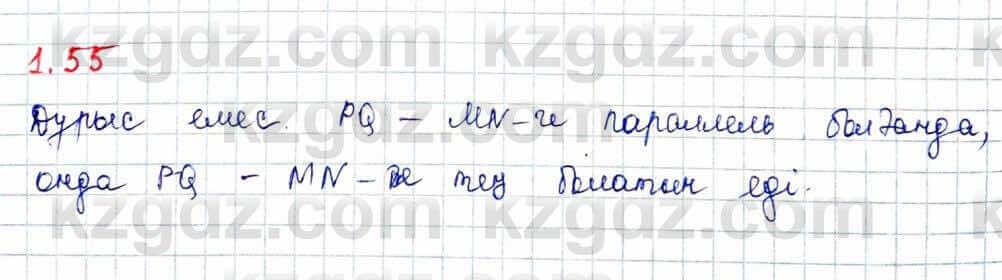 kzgdz.com kzgdz.com
1.55
Дұрыс емес. PQ – MN-ге параллель болғанда,
kzgdz.com kzgdz.com
онда PQ – MN-ге тең болатын еді.
kzgdz.com kzgdz.com